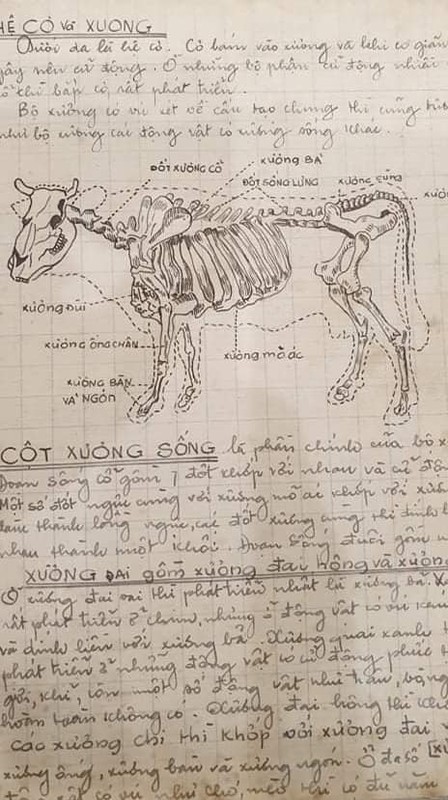 HỆ CƠ VÀ XƯƠNG
Dưới da là hệ cơ. Cơ bám vào xương và khi cơ giãn
gây nên cử động. Ở những bộ phận cử động nhiều
cơ bắp cơ rất phát triển.
Bộ xương có vú xét về cấu tạo chung thì cũng
như bộ xương các động vật có xương sống khác.
ĐỐT XƯƠNG CỔ
XƯƠNG BẢ
ĐỐT SỐNG LƯNG
XƯƠNG CÙNG
XƯƠNG ĐÙI
XƯƠNG ỐNG CHÂN
XƯƠNG MỎ ÁC
XƯƠNG BÀN
VÀ NGÓN
CỘT XƯƠNG SỐNG là phần chính của bộ
Đoạn sống cổ gồm 7 đốt khớp với nhau và cử
Một số đốt ngực cùng với xương mỏ ác khớp với
thành lồng ngực, các đốt xương cùng thì dính
nhau thành một khối. Đoạn sống đuôi gồm
XƯƠNG ĐAI gồm xương đai hông và xương
Ở xương đai vai thì phát triển nhất là xương bả.
rất phát triển ở chim, nhưng ở động vật có vú kém
và dính liền với xương bả. Xương quai xanh
phát triển ở những động vật có cử động phức
khỉ, còn một số động vật như trâu,
hoàn toàn không có. Xương đai hông thì
Các xương chi thì khớp với xương đai
xương ống, xương bàn và xương ngón. Ở đa số
có vú như chó, mèo thì có đủ năm